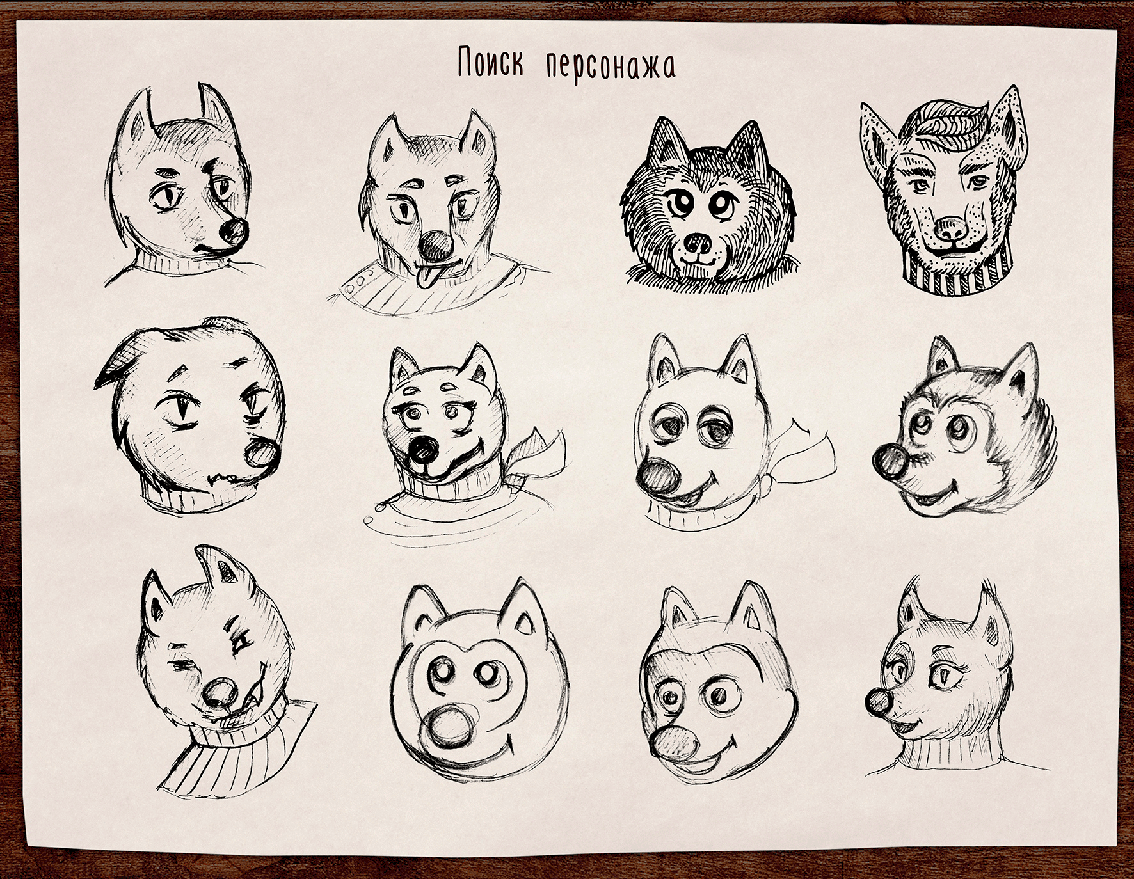 Поиск персонажа